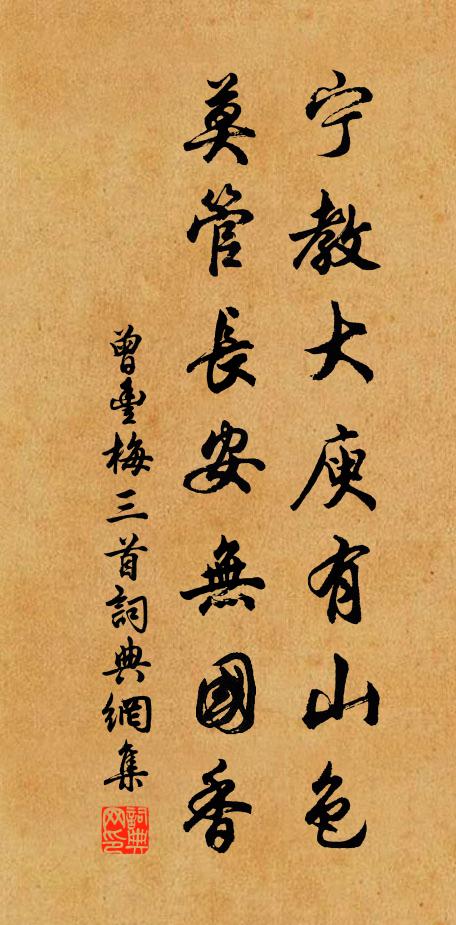 宁教大庾有山色
莫管長安無國香
曾豊梅三首詞典網集
詞典网印